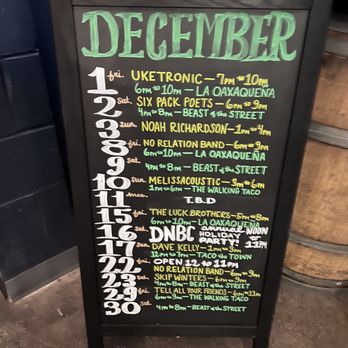 DECEMBER
1 fri. UKETRONIC — 7pm to 10pm
6pm to 10pm - LA OAXAQUEÑA
2 sat. SIX PACK POETS - 6pm to 9pm
4pm to 8pm - BEAST of the STREET
3 sun. NOAH RICHARDSON - 1pm to 4pm
8 fri. NO RELATION BAND - 6pm to 9pm
6pm to 10pm - LA OAXAQUEÑA
9 sat.
4pm to 8pm - BEAST of the STREET
10 sun. MELISSACOUSTIC - 3pm to 6pm
1pm to 6pm - THE WALKING TACO
11 mon. T.B.D
15 fri. THE LUCK BROTHERS - 5pm to 8pm
6pm to 10pm - LA OAXAQUEÑA
16 sat. DNBC annual HOLIDAY PARTY! NOON to 11pm
17 sun. DAVE KELLY - 1pm to 3pm
12pm to 7pm - TACO the TOWN
22 fri. OPEN 12 to 11pm
NO RELATION BAND - 6pm to 9pm
23 sat. SKIP WINTERS - 6pm to 9pm
4pm to 8pm - BEAST of the STREET
29 fri. TELL ALL YOUR FRIENDS - 6pm to 11pm
6pm to 9pm - THE WALKING TACO
30 sat.
4pm to 8pm - BEAST of the STREET